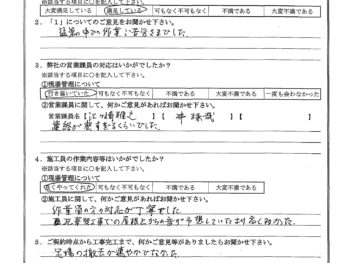 ※該当する項目に○を記入して下さい。
大変満足している 満足している 可もなく不可もなく 不満である 大変不満である
2．「1」についてのご意見をお聞かせ下さい。
猛暑の中での作業ご苦労さまでした。
3．弊社の営業課員の対応はいかがでしたか？
※該当する項目に○を記入して下さい。
①現場管理について
行き届いていた 可もなく不可もなく 不満である 大変不満である 一度も会わなかった
②営業課員に関して、何かご意見があればお聞かせ下さい。
営業課員名【
連絡が密すぎるくらいでした。
4．施工員の作業内容等はいかがでしたか？
※該当する項目に○を記入して下さい。
①現場管理について
良くやってくれた 可もなく不可もなく 不満である 大変不満である
②施工に関して、何かご意見があればお聞かせ下さい。
作業員の方の対応が丁寧でした。
屋根
音が予想していたより高くなかった。
5．ご契約時点から工事完工まで、何かご意見等がありましたらお聞かせ下さい。
足場の撤去が速やかでなかった。